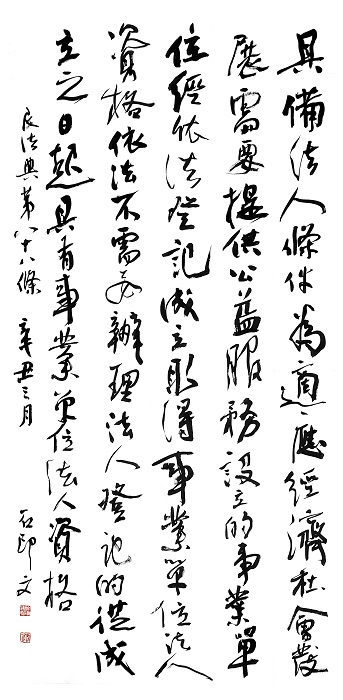 具備法人條件為適應經濟社會發
展需要提供公益服務設立的事業單
位經依法登記成立取得事業單位法人
資格依法不需要辦理法人登記的從成
立之日起具有事業單位法人資格
民法典第八十八條 辛丑三月 石印文